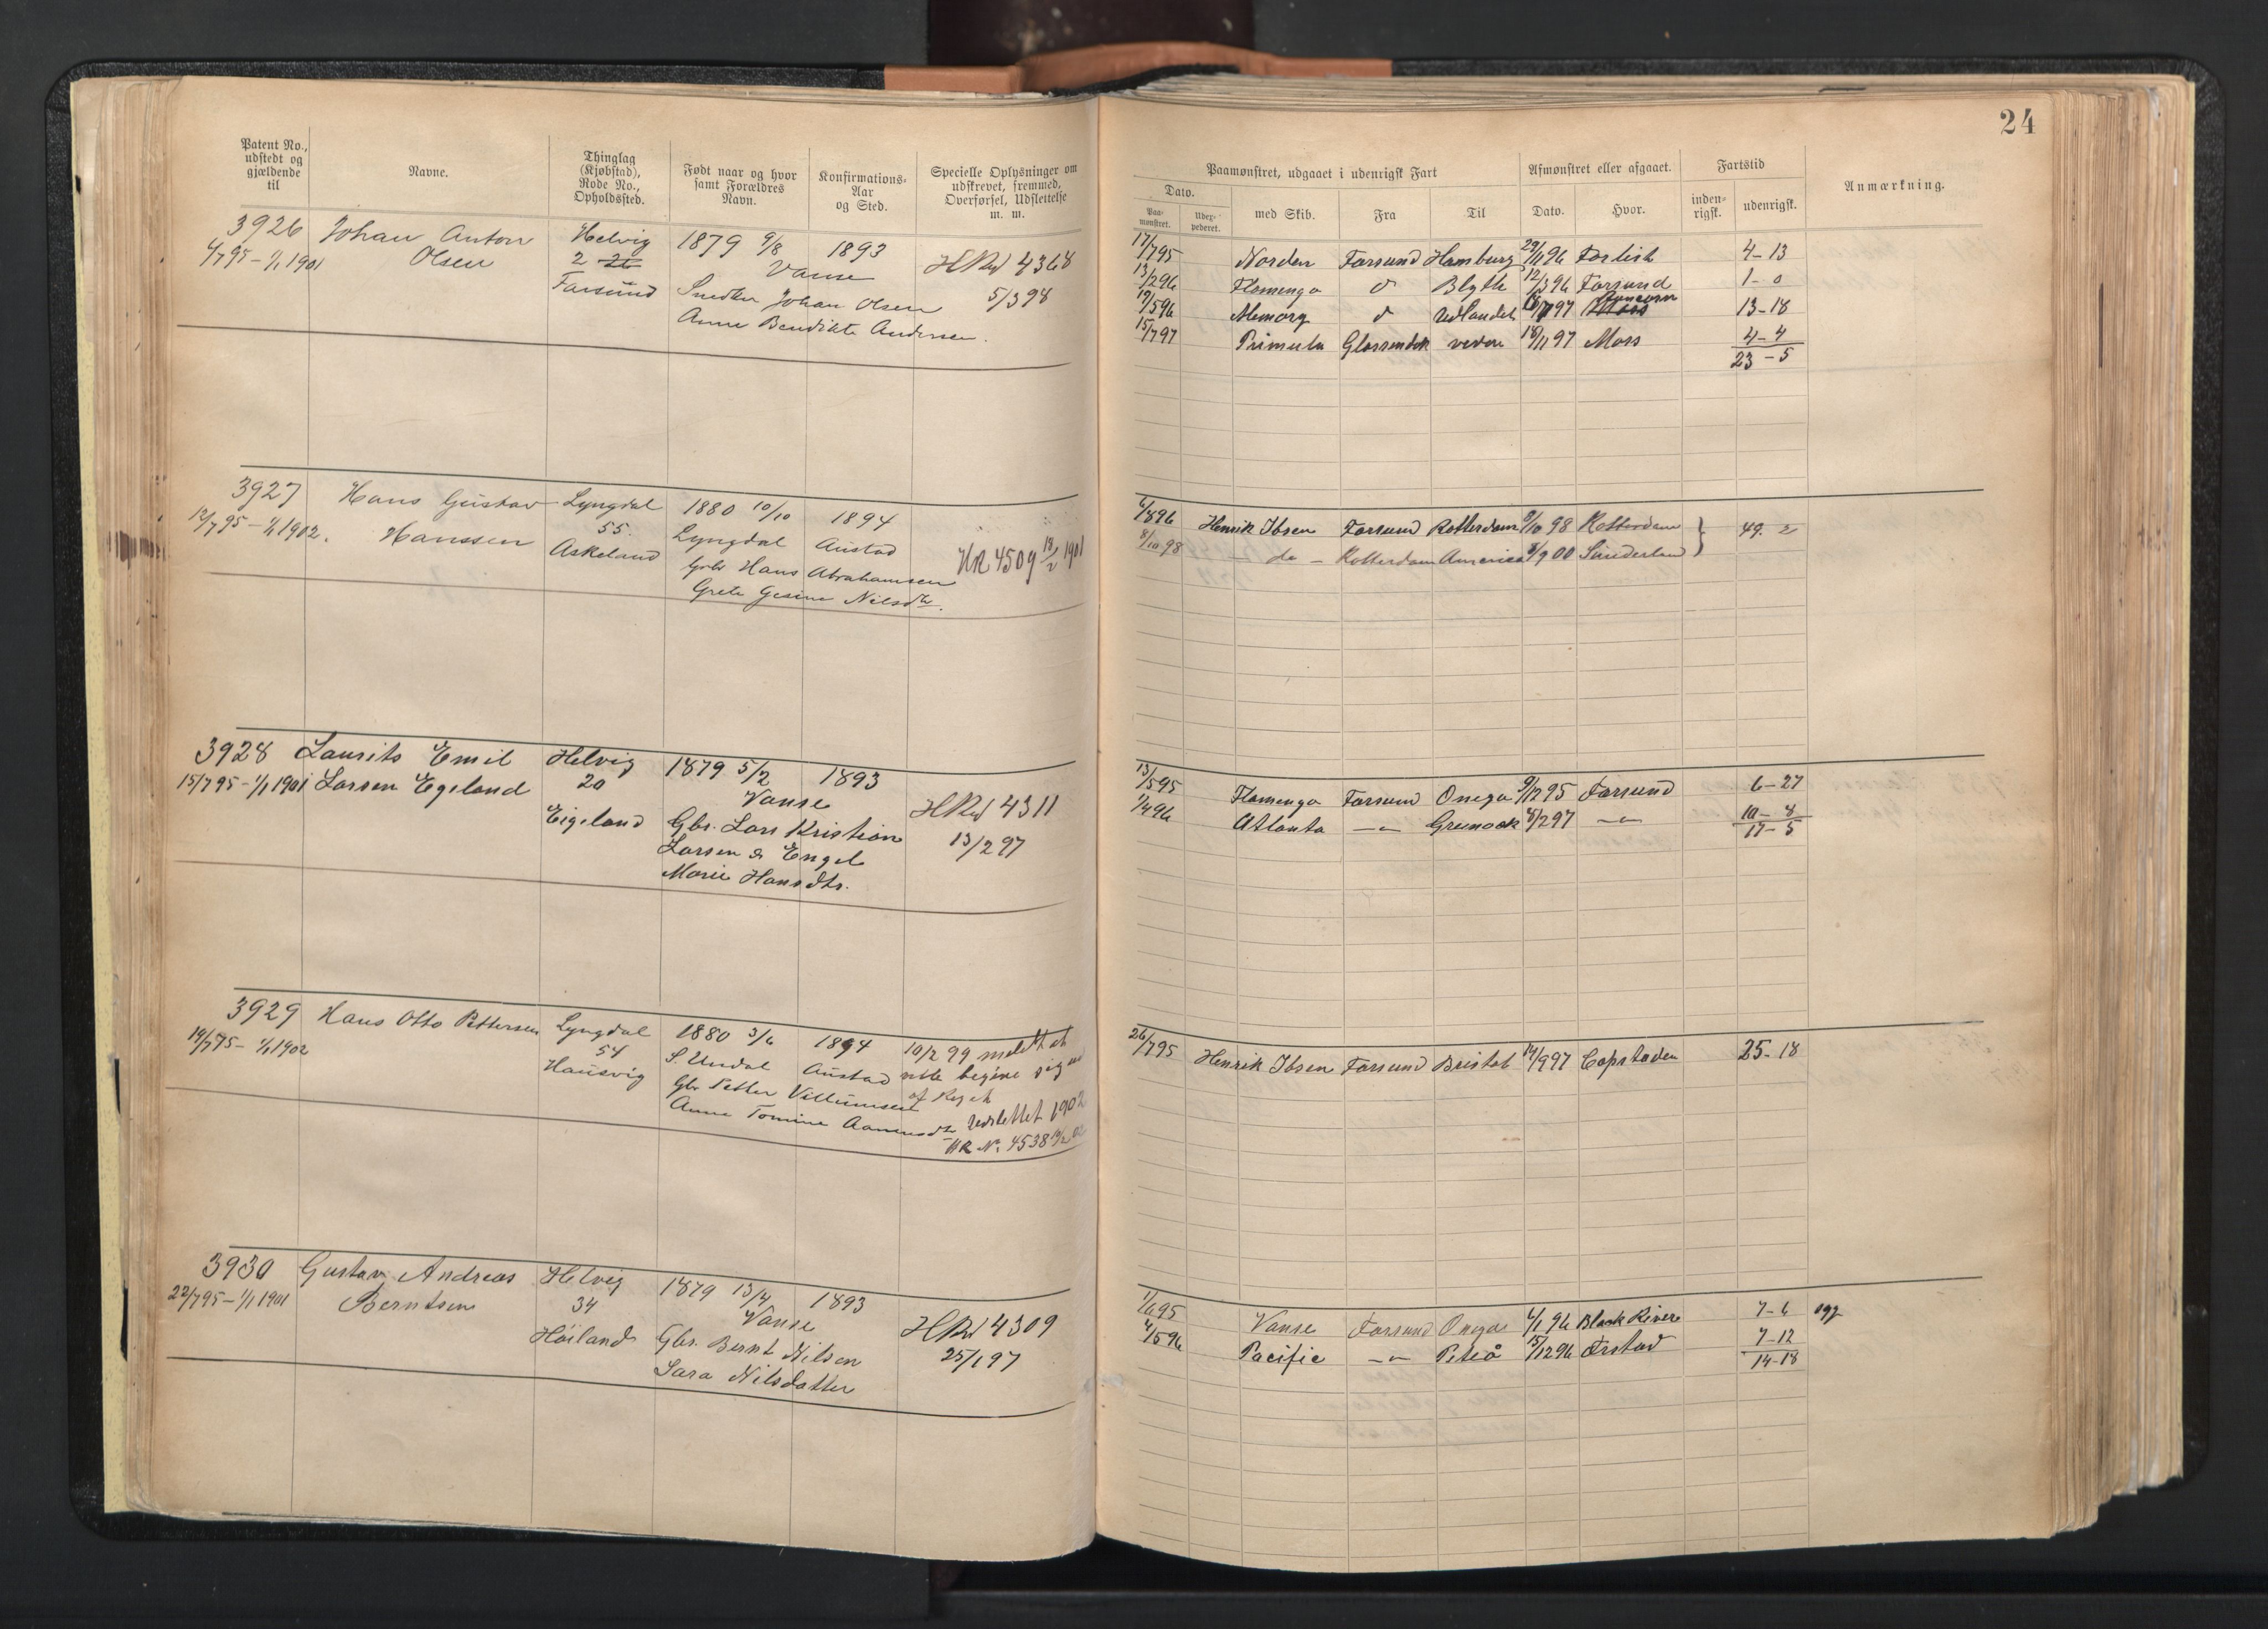 24
Patent No., udstedt og gjældende til
Navne.
Thinglag (Kjøbstad), Rode No., Opholdssted.
Født naar og hvor samt Forældres Navn.
Konfirmations-Aar og Sted.
Specielle Oplysninger om udskrevet, fremmed, Overførsel, Udslettelse m. m.
Paamønstret, udgaaet i udenrigsk Fart
Afmønstret eller afgaaet.
Fartstid
Anmærkning.
Dato.
Paamønstret.
med Skib.
Fra
Til
Dato.
Hvor.
indenrigsk.
udenrigsk.
3926 Johan Anton Helvig 1879 9/8 1893 HRul 4368
Olsen 2 Vanse 5/3 98
Farsund Snedker Johan Olsen
Anne Bendikte Andersen.
17/7 95 Norden Farsund Hamburg 29/11 96 4-13
13/2 96 Flamengo Blyth 12/3 96 Farsund 1-0
19/5 96 Udlandet 13-18
15/7 97 Primula 18/11 97 Moss 4-4
23-5
3927 Hans Gustav Lyngdal 1880 10/10 1894
12/7 95 - 1/1 1902. Hanssen 55. Lyngdal Austad HR 4509 18/2 1901
Askeland Gbr Hans Abrahamsen
Grete Gesine Nilsdtr.
6/8 96 Henrik Ibsen Farsund Rotterdam 8/10 98 Rotterdam 49. 2
8/10 98 - do - Rotterdam America 8/9 00 Sunderland
3928 Laurits Emil Helvig 1879 5/2 1893
15/7 95 - 1/1 1901 Larsen Egeland 20 Vanse HRul 4311
Eigeland Gbr. Lars Kristian 13/2 97
Larsen & Engel
Marie Hansdtr.
13/5 95 Flamengo Farsund Onega 9/12 95 Farsund 6-27
1/4 96 Atlanta -"- Greenock 8/2 97 -"- 10-8
17-5
3929 Hans Otto Pettersen Lyngdal 1880 3/6 1894 10/2 99 meldt at
19/7 95 - 1/1 1902 54 S. Undal Austad ville begive sig ud
Hausvig Gbr Petter Villumsen af Riget
Anne Tomine Udslettet 1902
HR No. 4538
26/7 95 Henrik Ibsen Farsund Bristol 14/9 97 Capstaden 25-18
3930 Gustav Andreas Helvig 1879 13/4 1893
22/7 95 - 1/1 1901 Berntsen 34 Vanse HRul 4309
Høiland Gbr. Bernt Nilsen 25/1 97
Sara Nilsdatter
1/6 95 Vanse Farsund Onega 6/1 96 Black River 7-6
4/5 96 Pacific -"- Piteå 15/12 96 7-12
14-18